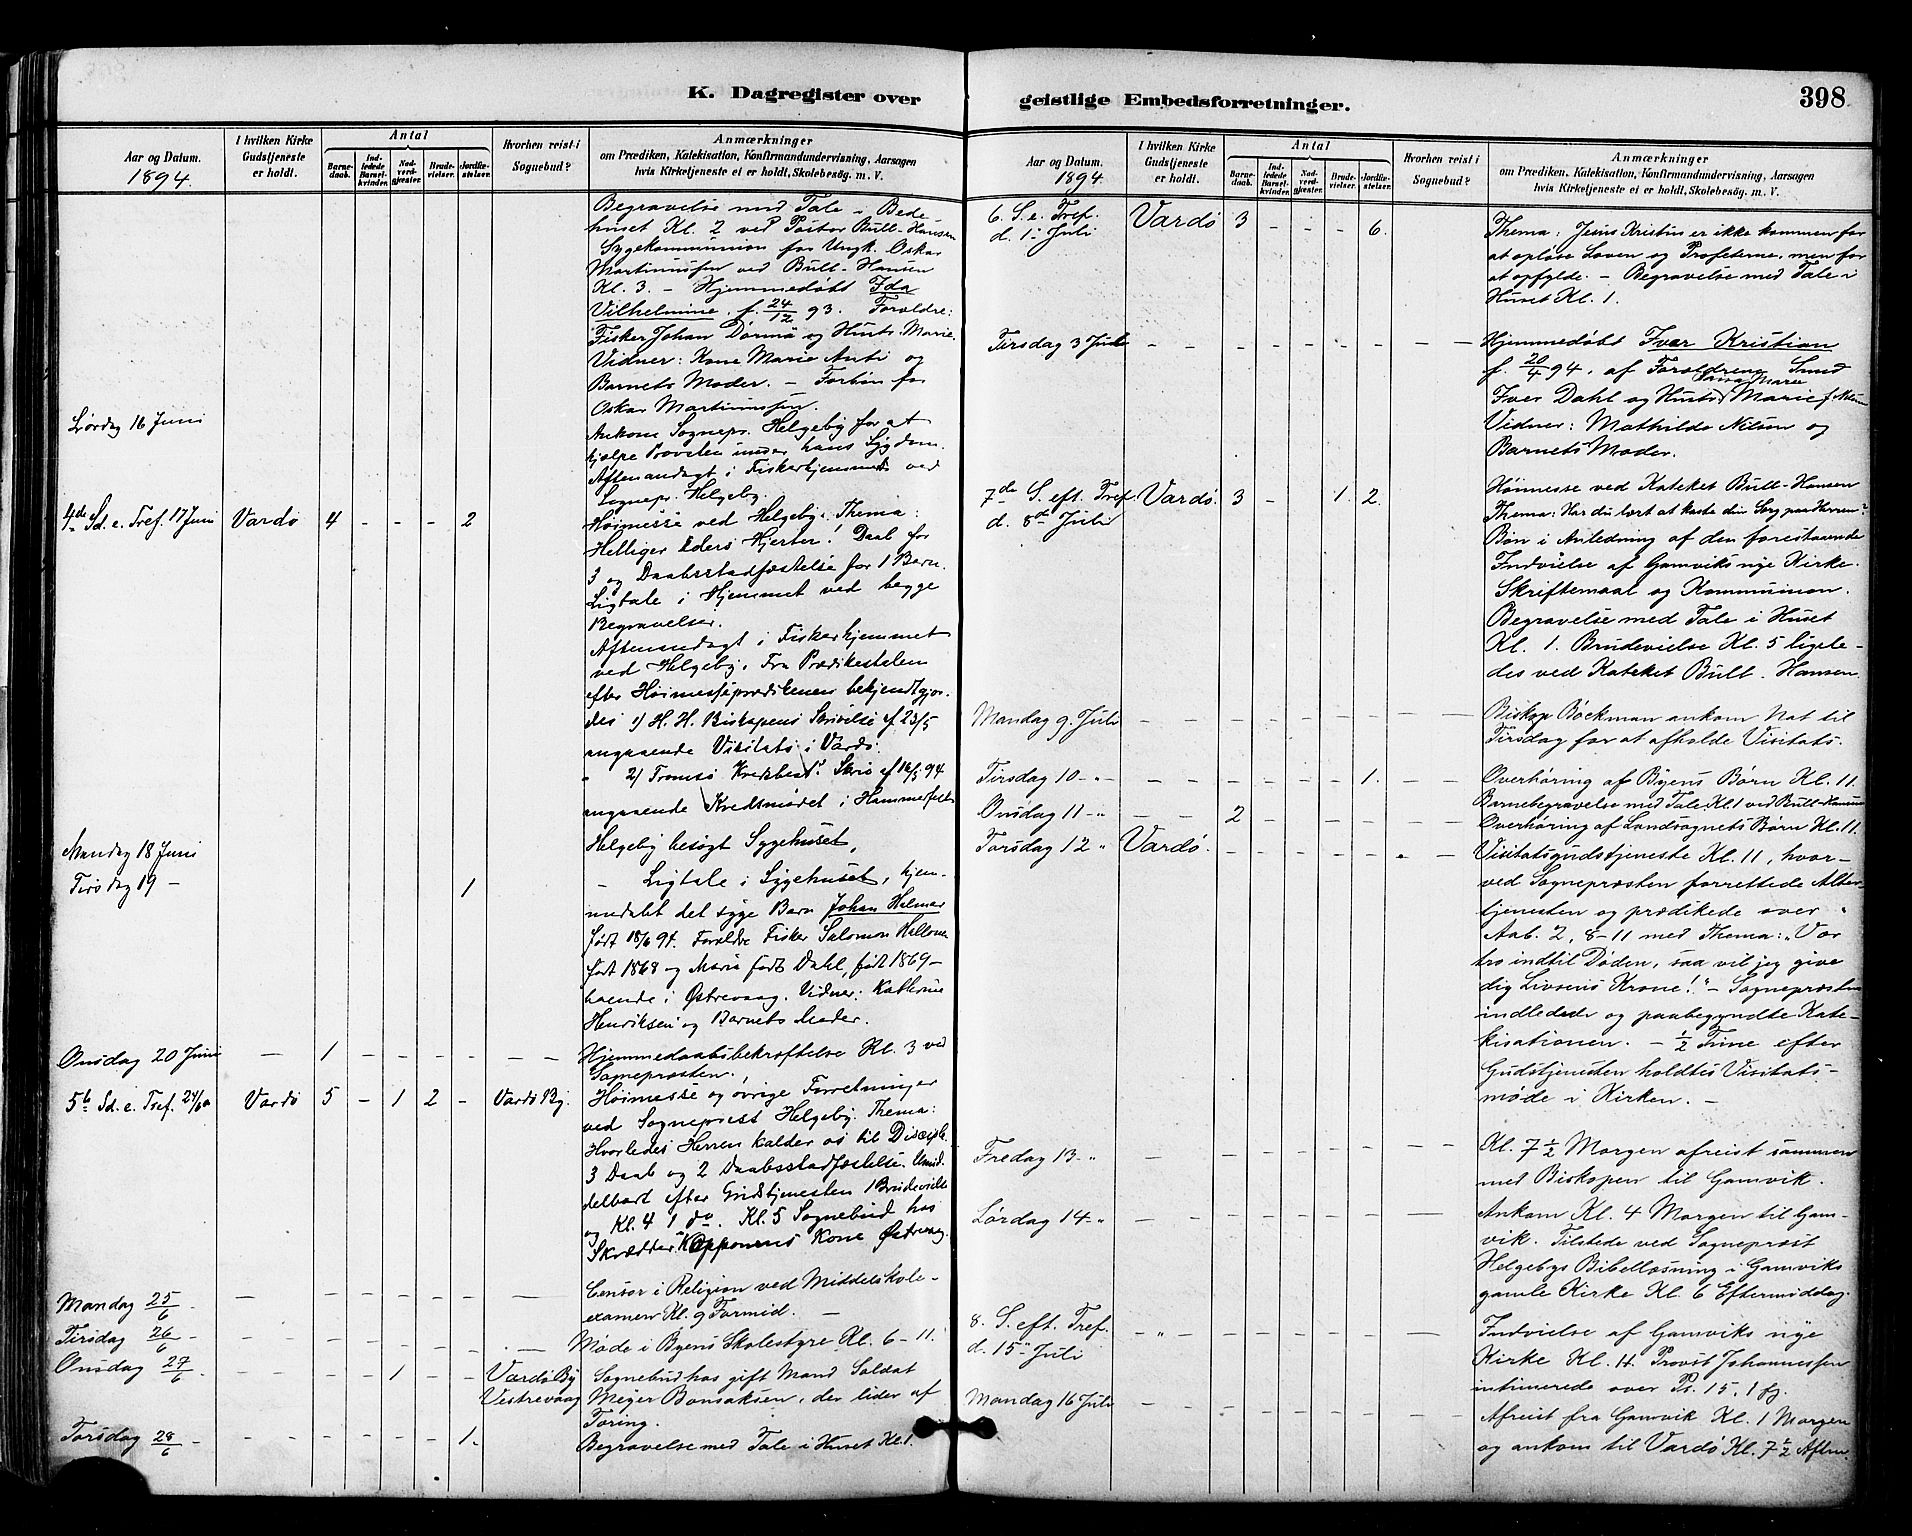 K. Dagregister over
geistlige Embedsforretninger.
398
Aar og Datum.
1894.
I hvilken Kirke
Gudstjeneste
er holdt.
Antal
Barne-
daab.
Ind-
ledede
Barsel-
kvinder.
Nad-
verd-
gjæster.
Brude-
vielser.
Jordfæ-
stelser.
Hvorhen reist i
Sognebud?
Anmærkninger
om Prædiken, Katekisation, Konfirmandundervisning, Aarsagen
hvis Kirketjeneste ei er holdt, Skolebesøg. m. V.
Begravelse med Tale i Bede-
huset Kl. 2 ved Pastor Bull-Hansen
Sygekommunion for Ungk. Oskar
Martinussen ved Bull-Hansen
Kl. 3. – Hjemmedøbt Ida
Vilhelmine, f. 24/12 93. Forældre:
Fisker Johan Dørmø og Hustr. Marie.
Vidner: Kone Marie Anti og
Barnets Moder. – Forbøn for
Oskar Martinussen.
Lørdag 16 Juni
Ankom Sognepr. Helgeby for at
hjælpe Provsten under hans Sygdom.
Aftenandagt i Fiskerhjemmet ved
Sognepr. Helgeby.
4de Sd. e. Tref. 17 Juni Vardø 4 - - - 2
Høimesse ved Helgeby. Thema:
Helliger Eders Hjerter! Daab for
3 og Daabsstadfæstelse for 1 Barn.
Ligtale i Hjemmet ved begge
Begravelser.
Aftenandagt i Fiskerhjemmet
ved Helgeby. Fra Prædikestolen
efter Høimesseprædikenens bekjendtgjor-
des 1) H. H. Biskopens Skrivelse af 23/5
angaaende Visitats i Vardø.
" 2) Tromsø Kredsbest. Skriv af 16/5 94
angaaende Kredsmødet i Hammerfest
Mandag 18 Juni
Helgeby besøgt Sygehuset.
Tirsdag 19 - 1
" Ligtale i Sygehuset, hjem-
medøbt det syge Barn Johan Helmer
født 18/6 94. Forældre Fisker Salomon
født 1868 og Maria født Dahl, født 1869 –
boende i Østrevaag. Vidner: Kathrine
Henriksen og Barnets Moder.
Onsdag 20 Juni — 1 - - - - — —
Hjemmedaabsbekræftelse Kl. 3 ved
Sognepræsten.
5te Sd. e. Tref. 24/6 Vardø 5 - 1 2 - Vardø By.
Høimesse og øvrige Forretninger
ved Sogneprest Helgeby. Thema:
Hvorledes Herren kalder os til Discipler
3 Daab og 2 Daabsstadfæstelse. Umid-
delbart efter Gudstjenesten 1 Brudevielse
og Kl. 4 1 do. Kl. 5 Sognebud hos
Skrædder Kopponens Kone Østrevaag.
Mandag 25/6 - — - - - - - —
Censor i Religion ved Middelskole-
examen Kl. 9 Formid. –
Tirsdag 26/6 - — - - - - - —
Møde i Byens Skolestyre Kl. 6 – 11.
Onsdag 27/6 - — - - 1 - - Vardø By
Vestrevaag
Sognebud hos gift Mand Soldat
Meyer Bonsaksen, der lider af
Tæring.
Torsdag 28/6 - - - - - - 1.
Begravelse med Tale i Huset Kl. 1.
Aar og Datum.
1894.
I hvilken Kirke
Gudstjeneste
er holdt.
Antal
Barne-
daab.
Ind-
ledede
Barsel-
kvinder.
Nad-
verd-
gjæster.
Brude-
vielser.
Jordfæ-
stelser.
Hvorhen reist i
Sognebud?
Anmærkninger
om Prædiken, Katekisation, Konfirmandundervisning, Aarsagen
hvis Kirketjeneste ei er holdt, Skolebesøg m. V.
6. S. e. Tref.
d. 1ste Juli
Vardø 3 - - - 6.
Thema: Jesus Kristus er ikke kommen for
at opløse Loven og Profeterne, men for
at opfylde. – Begravelse med Tale i
Huset Kl. 1.
Tirsdag 3 Juli - - - - - - - - —
Hjemmedøbt Iver Kristian
f. 20/4 94, af Forældrene Smed
Iver Dahl og Hustr. Marie f. Nilsen
Vidner: Mathilde Nilsen og
Barnets Moder.
7de S. eft. Tref.
d. 8de Juli
Vardø. 3 - 1. 2.
Høimesse ved Kateket Bull-Hansen
Thema: Har du lært at kaste din Sorg paa Herren?
Bøn i Anledning af den forestaaende
Indvielse af Gamviks nye Kirke.
Skriftemaal og Kommunion.
Begravelse med Tale i Huset
Kl. 1. Brudevielse Kl. 5 ligele-
des ved Kateket Bull-Hansen
Mandag 9. Juli - - - - - - - - —
Biskop Bøckman ankom Nat til
Tirsdag for at afholde Visitats.
Tirsdag 10 - " - - - - - - 1. - —
Overhøring af Byens Børn Kl. 11.
Barnebegravelse med Tale Kl. 1 ved Bull-Hansen
Onsdag 11 - " - - 2 - - - - - —
Overhøring af Landsognets Børn Kl. 11.
Torsdag 12 " Vardø. - - - - - - —
Visitatsgudstjeneste Kl. 11, hvor-
ved Sognepræsten forrettede Alter-
tjenesten og prædikede over
Aab. 2, 8–11 med Thema: „Vær
tro indtil Døden, saa vil jeg give
dig Livsens Krone!" – Sognepræsten
indledede og paabegyndte Kate-
kisationen. – ½ Time efter
Gudstjenesten holdtes Visitats-
møde i Kirken. –
Fredag 13 - " — - - - - - - —
Kl. 7 ½ Morgen afreist sammen
med Biskopen til Gamvik.
Lørdag 14 - " - - - - - - - - —
Ankom Kl. 4 Morgen til Gam-
vik. Tilstede ved Sogneprest
Helgebys Bibellæsning i Gamviks
gamle Kirke Kl. 6 Eftermiddag.
8. S. eft. Tref.
d. 15de Juli
- " - - - - - - - —
Indvielse af Gamviks nye
Kirke Kl. 11. Provst Johannessen
intimerede over Ps. 15, 1 fg.
Mandag 16 Juli - - - - - - - - —
Afreist fra Gamvik Kl. 1 Morgen
og ankom til Vardø Kl. 7 ½ Aften.